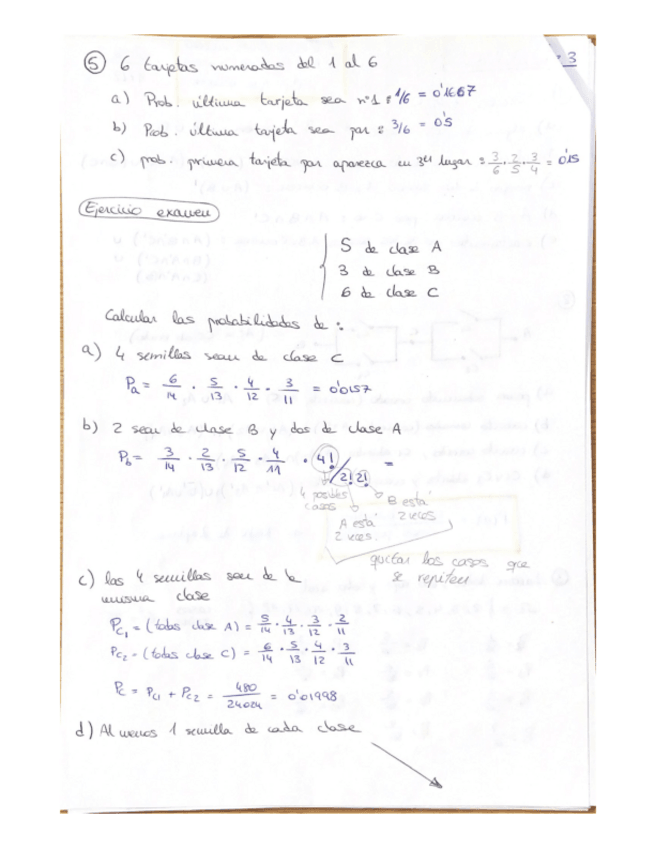 3
⑤ 6 tarjetas numeradas del 1 al 6
a) Prob. última tarjeta sea nº1 : 1/6 = 0'1667
b) Prob. última tarjeta sea par : 3/6 = 0'5
c) prob. primera tarjeta par aparezca en 3er lugar : 3/6 · 2/5 · 3/4 = 0'15
Ejercicio examen
5 de clase A
3 de clase B
6 de clase C
Calcular las probabilidades de :
a) 4 semillas sean de clase C
Pa = 6/14 · 5/13 · 4/12 · 3/11 = 0'0157
b) 2 sean de clase B y dos de clase A
Pb = 3/14 · 2/13 · 5/12 · 4/11 · 4!/2!2! =
4 posibles casos
A está 2 veces
B está 2 veces
quitar los casos que
se repiten
c) las 4 semillas sean de la
misma clase
Pc1 = (todas clase A) = 5/14 · 4/13 · 3/12 · 2/11
Pc2 = (todas clase C) = 6/14 · 5/13 · 4/12 · 3/11
Pc = Pc1 + Pc2 = 480/24024 = 0'01998
d) Al menos 1 semilla de cada clase